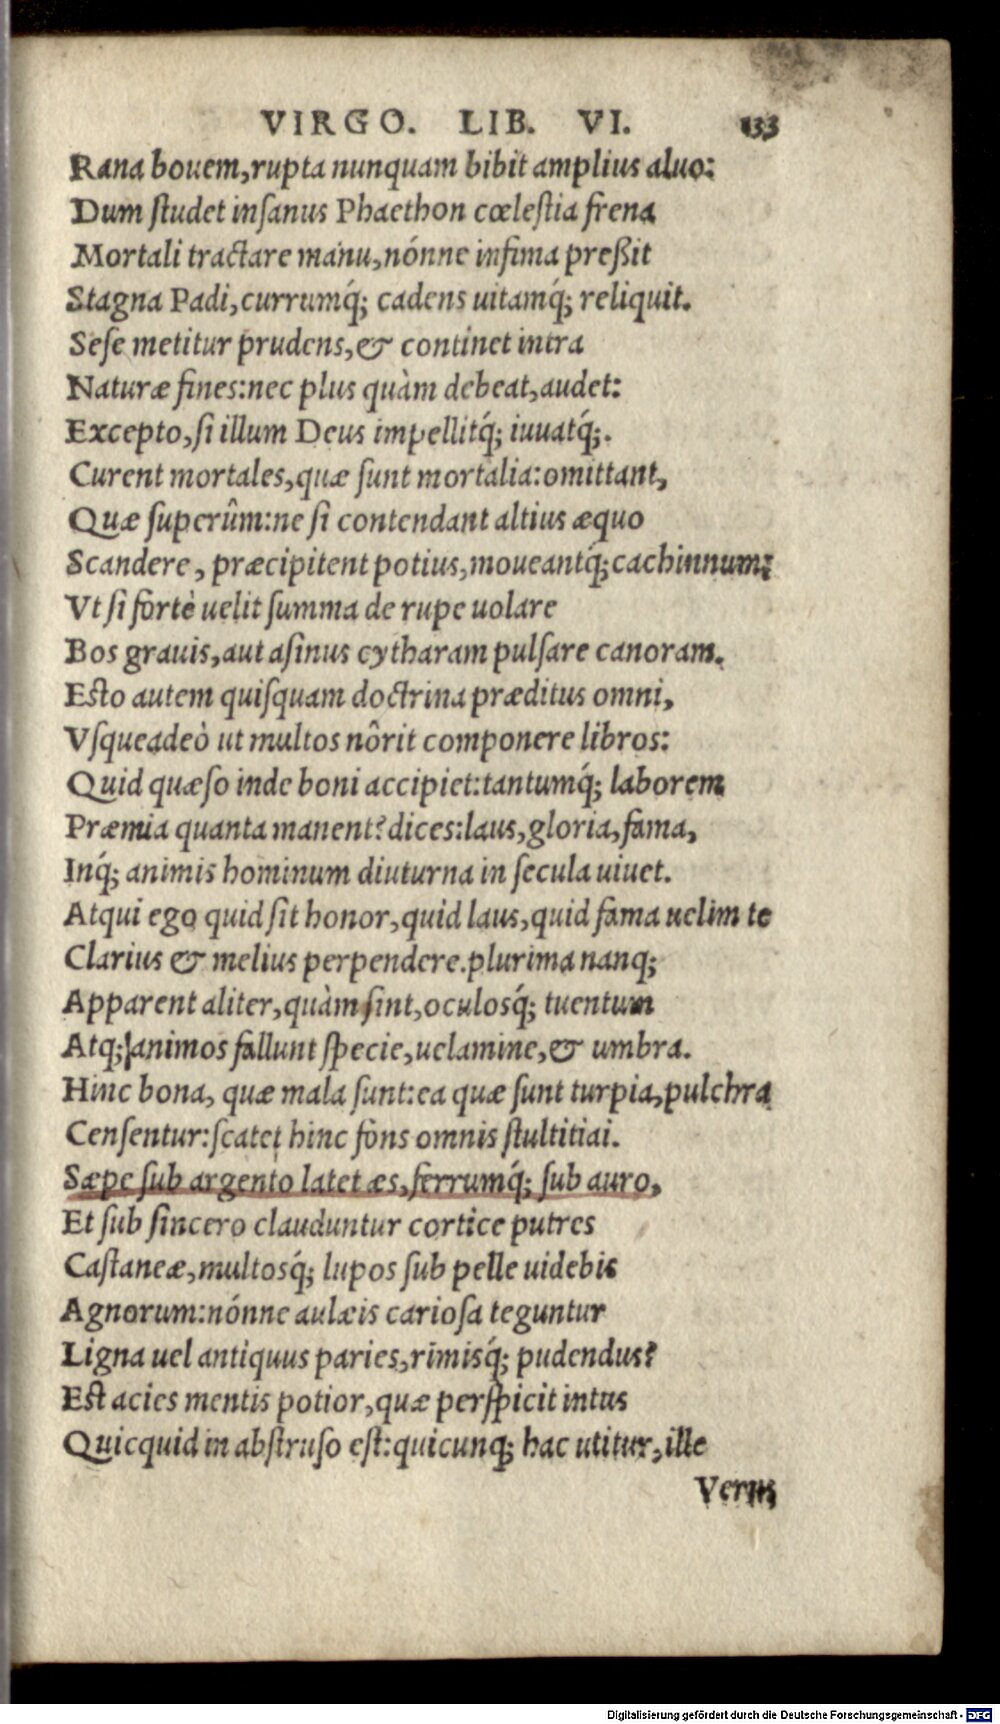 VIRGO. LIB. VI. 133
Rana bouem, rupta nunquam bibit amplius aluo:
Dum ſtudet inſanus Phaethon cœleſtia frena
Mortali tractare manu, nónne infima preßit
Stagna Padi, currumq́; cadens uitamq́; reliquit.
Seſe metitur prudens, & continet intra
Naturæ fines: nec plus quàm debeat, audet:
Excepto, ſi illum Deus impellitq́; iuuatq́;.
Curent mortales, quæ ſunt mortalia: omittant,
Quæ ſuperûm: ne ſi contendant altius æquo
Scandere, præcipitent potius, moueantq́; cachinnum:
Vt ſi fortè uelit ſumma de rupe uolare
Bos grauis, aut aſinus cytharam pulſare canoram.
Eſto autem quiſquam doctrina præditus omni,
Vſqueadeò ut multos nôrit componere libros:
Quid quæſo inde boni accipiet: tantumq́; laborem
Præmia quanta manent? dices: laus, gloria, fama,
Inq́; animis hominum diuturna in ſecula uiuet.
Atqui ego quid ſit honor, quid laus, quid fama uelim te
Clarius & melius perpendere. plurima nanq;
Apparent aliter, quàm ſint, oculosq́; tuentum
Atq; animos fallunt ſpecie, uelamine, & umbra.
Hinc bona, quæ mala ſunt: ea quæ ſunt turpia, pulchra
Cenſentur: ſcatet hinc fons omnis ſtultitiai.
Sæpe ſub argento latet æs, ferrumq́; ſub auro,
Et ſub ſincero clauduntur cortice putres
Caſtaneæ, multosq́; lupos ſub pelle uidebis
Agnorum: nónne aulæis carioſa teguntur
Ligna uel antiquus paries, rimisq́; pudendus?
Eſt acies mentis potior, quæ perſpicit intus
Quicquid in abſtruſo eſt: quicunq; hac utitur, ille
Verus
Digitalisierung gefördert durch die Deutsche Forschungsgemeinschaft - DFG